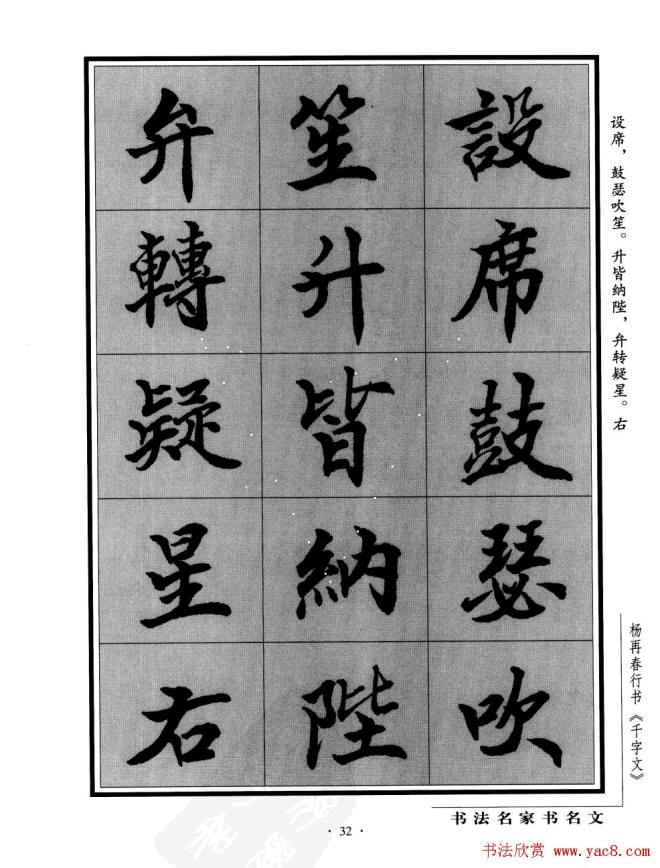 設席鼓瑟吹
笙升皆納陛
弁轉疑星右
设席，鼓瑟吹笙。升皆纳陛，弁转疑星。右
杨再春行书《千字文》
书法名家书名文
·32·
书法欣赏 www.yac8.com